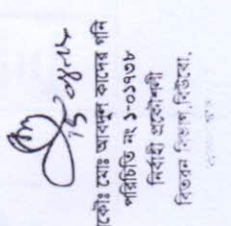 প্রকৌঃ মোঃ আবদুল কাদের গনি
পরিচিতি নং ১-০১৭৩৮
নির্বাহী প্রকৌশলী
বিতরন বিভাগ,বিউবো.